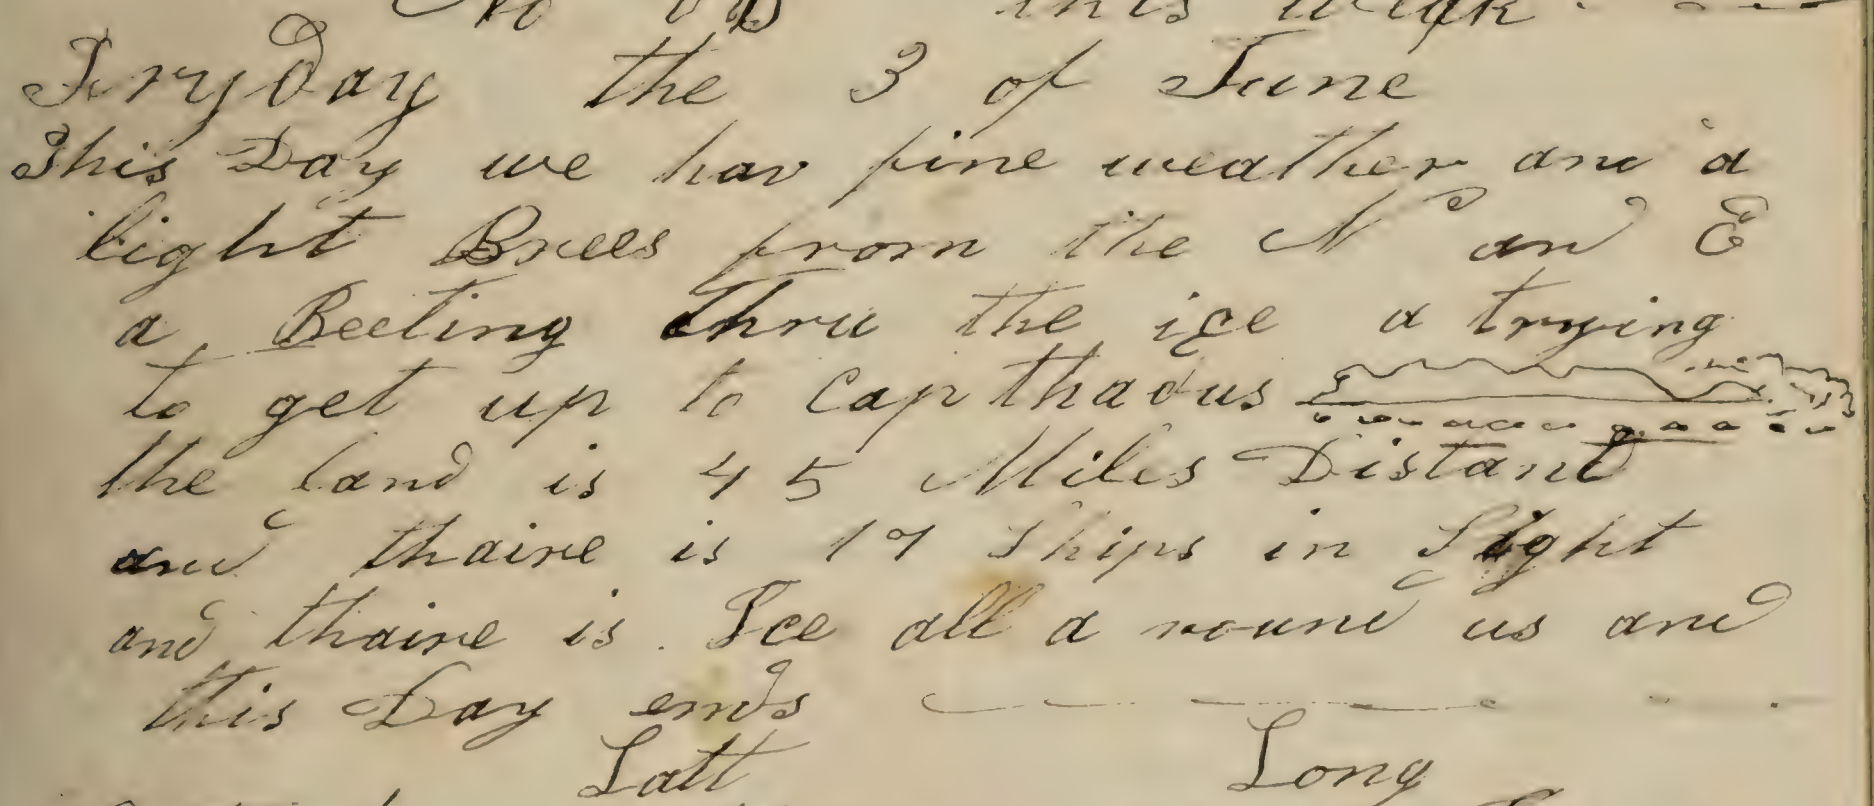 No ob this week
Fryday the 3 of June
This Day we hav fine weather and a
light Brees from the N and E
a Beeting thru the ice a trying
to get up to Cap thadus
the land is 45 Miles Distant
and thaire is 17 Ships in Sight
and thaire is Ice all a round us and
this Day ends
Latt Long